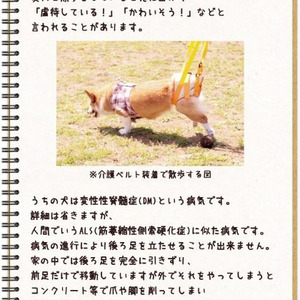 「虐待している！」「かわいそう！」などと
言われることがあります。
※介護ベルト装着で散歩する図
うちの犬は変性性脊髄症(DM)という病気です。
詳細は省きますが、
人間でいうALS(筋萎縮性側索硬化症)に似た病気です。
病気の進行により後ろ足を立たせることが出来ません。
家の中では後ろ足を完全に引きずり、
前足だけで移動していますが外でそれをやってしまうと
コンクリート等で爪や脚を削ってしまい